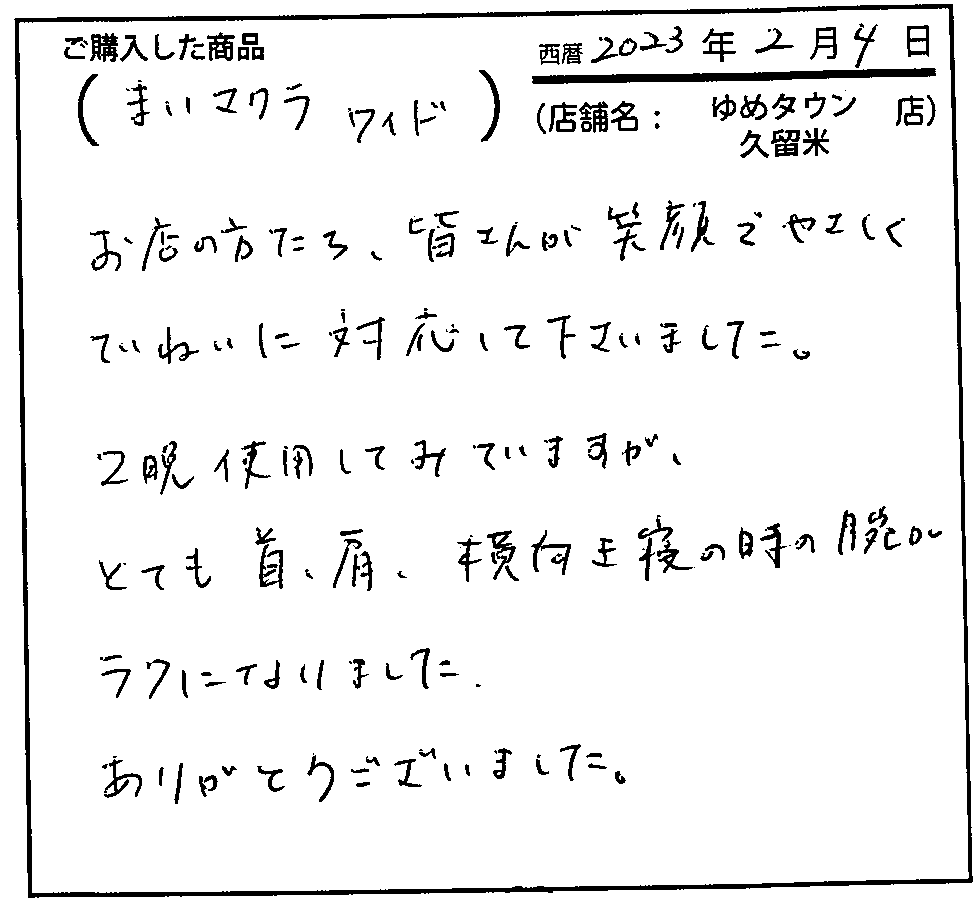 ご購入した商品
西暦 2023 年 2 月 4 日
(まいマクラ ワイド)
(店舗名： ゆめタウン 店)
久留米
お店の方たち、皆さんが笑顔でやさしく
ていねいに対応して下さいました。
2晩使用してみていますが、
とても首、肩、横向き寝の時の腕が
ラクになりました.
ありがとうございました。